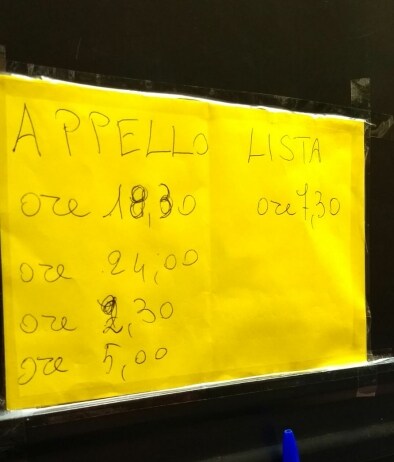 APPELLO LISTA
ore 18,30 ore 7,30
ore 24,00
ore 2,30
ore 5,00